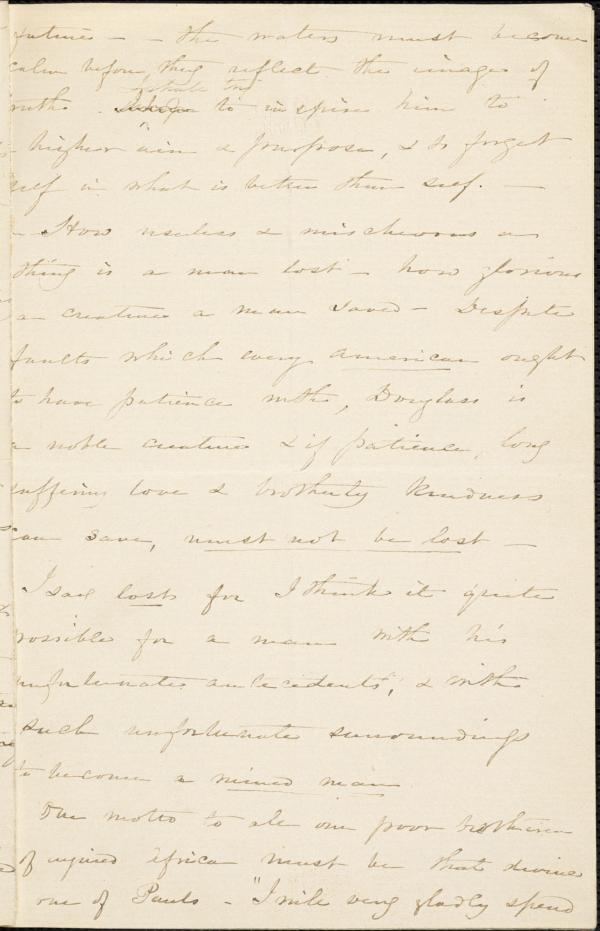 future — — the waters must become
calm before they reflect the images of
truth.
to inspire him to
higher aim & purpose, & to forget
self in what is better than self. —
— How useless & mischievous a
thing is a man lost — how glorious
a creature a man saved — Despite
faults which every american ought
to have patience with, Douglass is
a noble creature & if patience, long
suffering love & brotherly kindness
can save, must not be lost —
I say lost for I think it quite
possible for a man with his
unfortunate antecedents, & with
such unfortunate surroundings
to become a ruined man
Our motto to all our poor brethren
of injured Africa must be that divine
one of Pauls — "I will very gladly spend